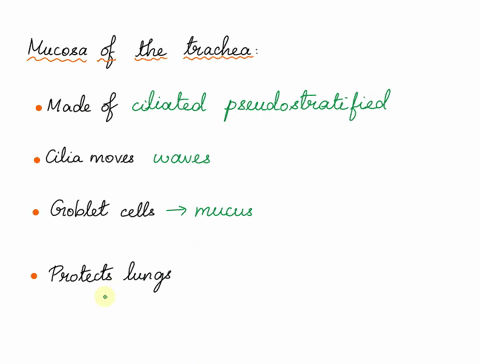 Mucosa of the trachea:
• Made of ciliated pseudostratified
• Cilia moves waves
• Goblet cells → mucus
• Protects lungs